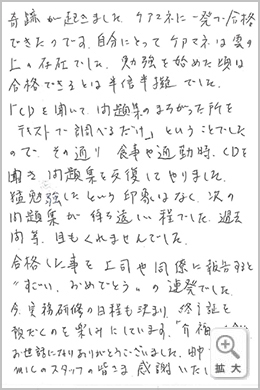 奇跡が起きました。ケアマネに一発で合格
できたのです。自分にとってケアマネは雲の
上の存在でした。勉強を始めた頃は
合格できるとは半信半疑でした。
「CDを聞いて、問題集のまちがった所を
テキストで調べるだけ」ということでした
ので、その通り食事や通勤時、CDを
聞き、問題集を反復してやりました。
猛勉強したという印象はなく、次の
問題集が待ち遠しい程でした。過去
問等、目もくれませんでした。
合格した事を上司や同僚に報告すると
"すごい、おめでとう"の連発でした。
今、実務研修の日程も決まり、修了証を
頂だくのを楽しみにしています。
お世話になりありがとうございました。
MICのスタッフの皆さま 感謝いたし
拡大